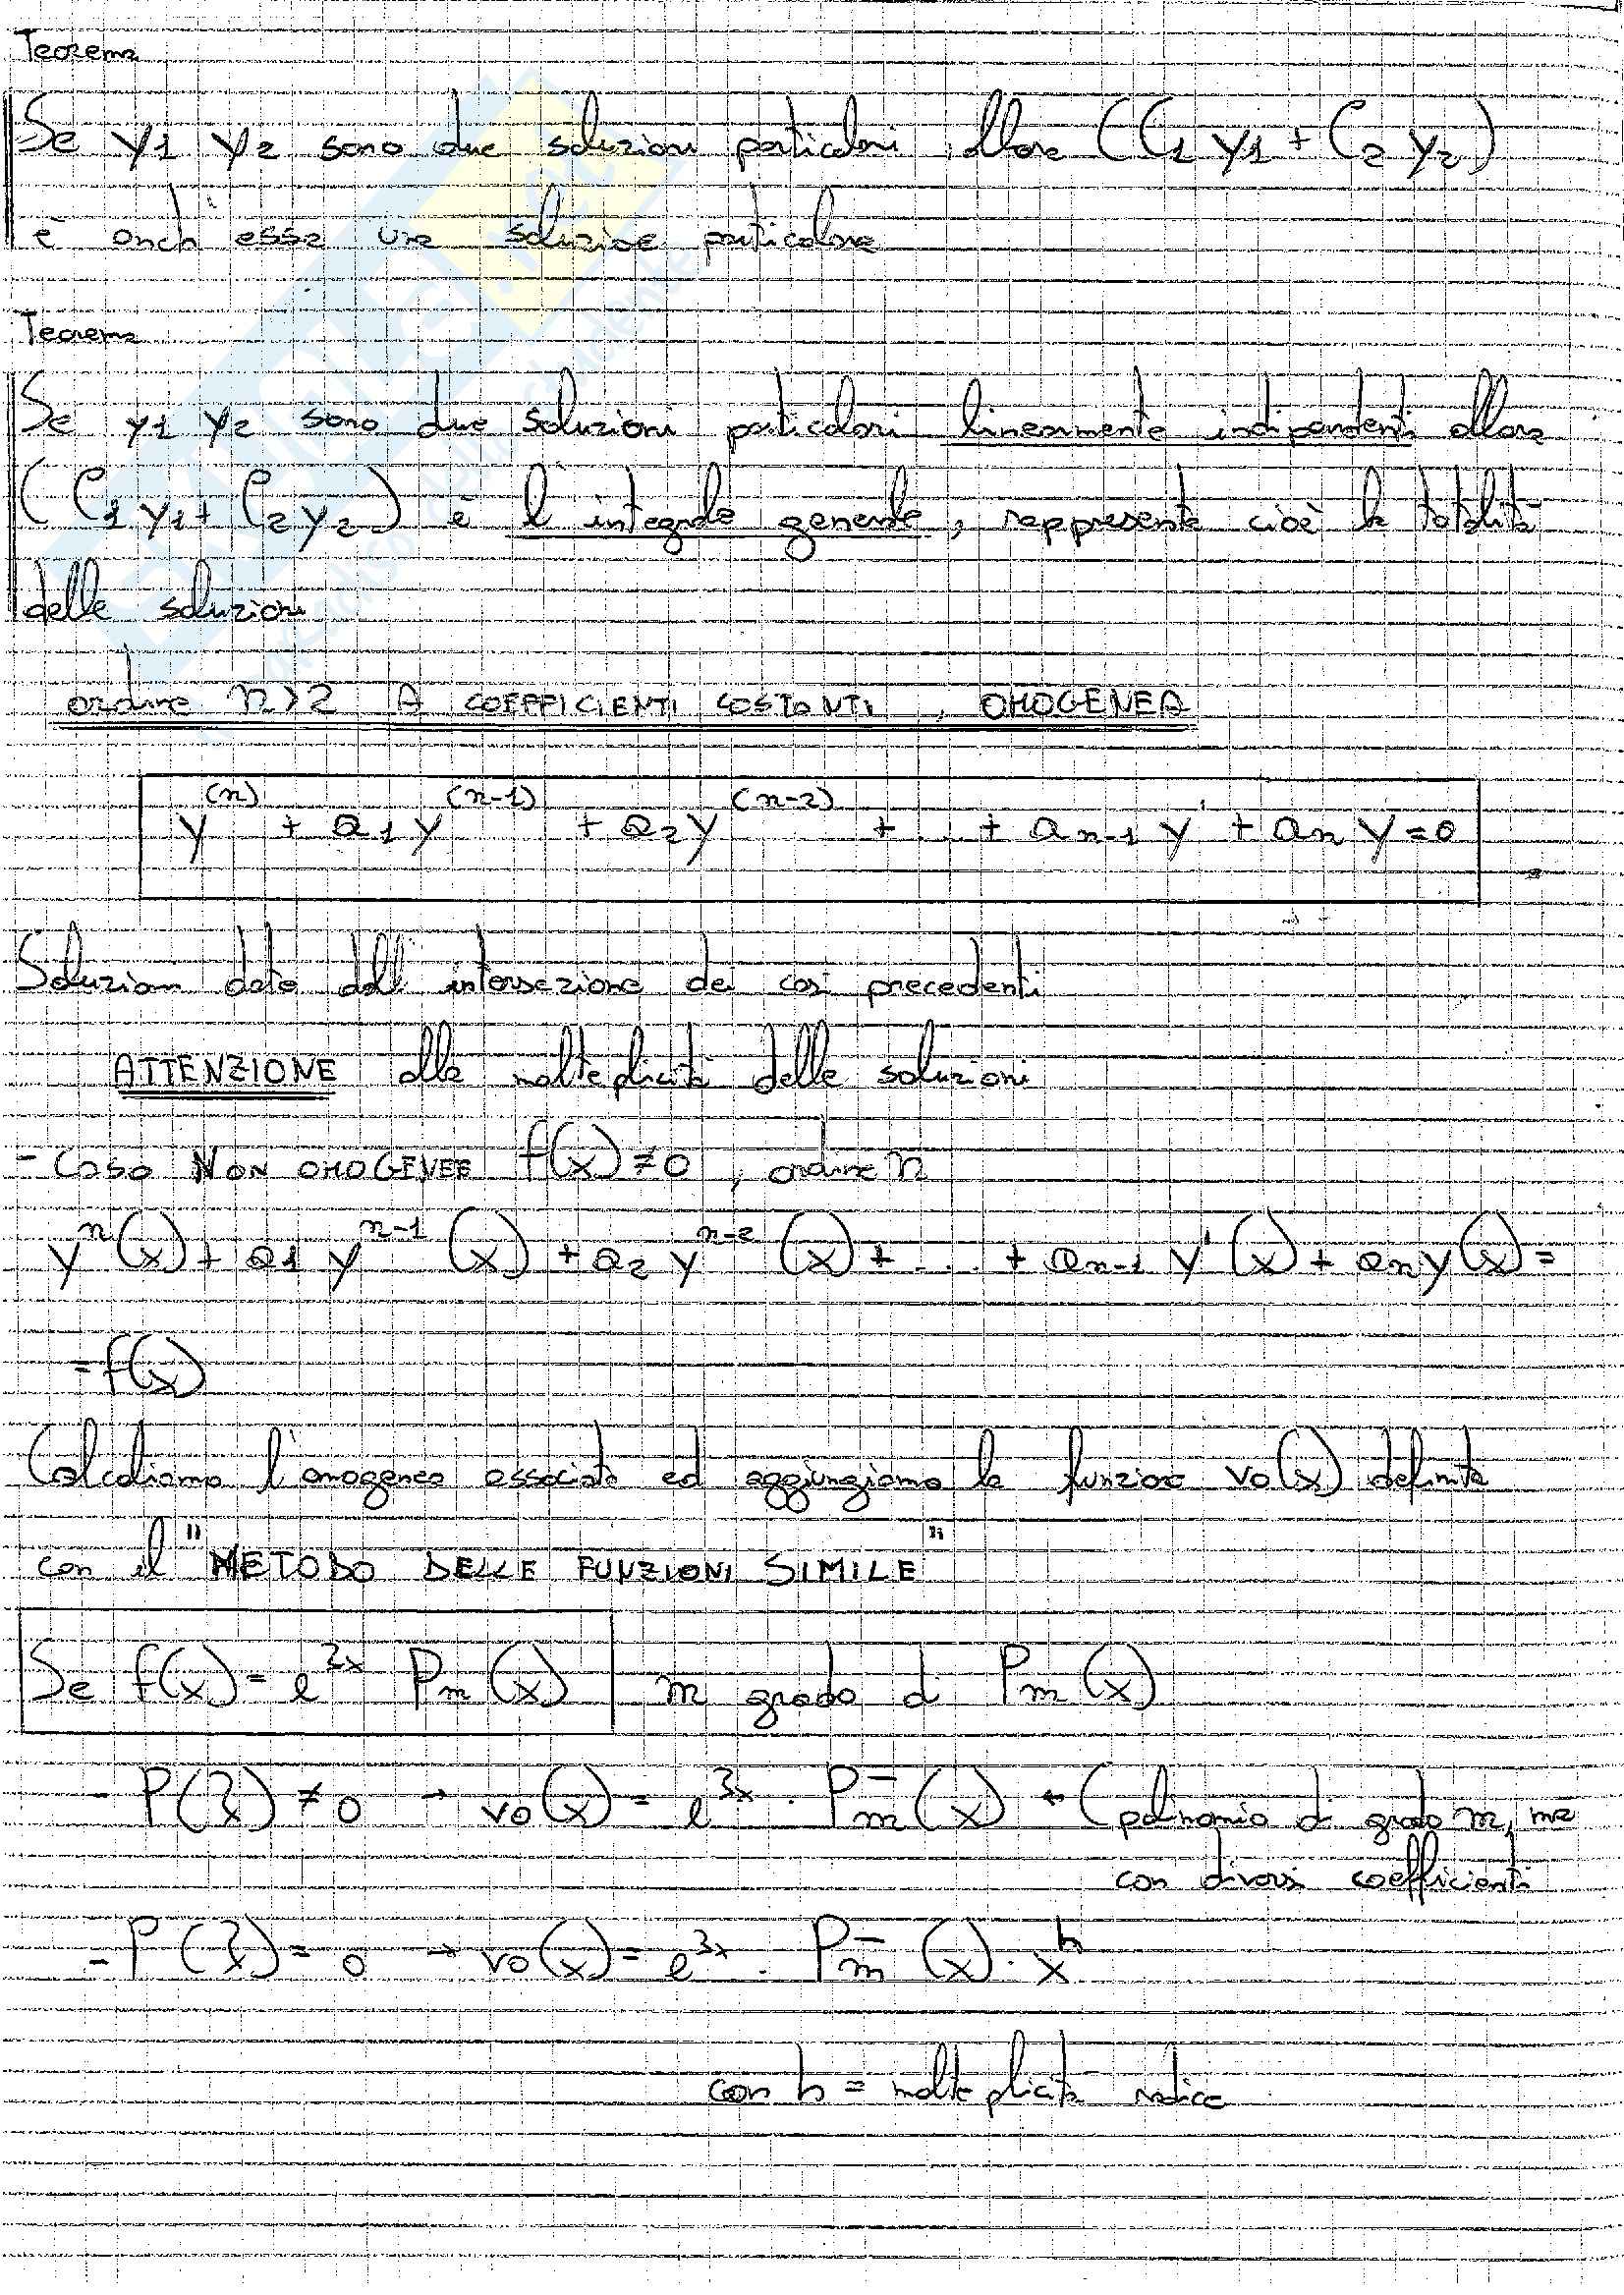 Teorema
Se y1 y2 sono due soluzioni particolari allora (C1 y1 + C2 y2)
è anch essa una soluzione particolare
Teorema
Se y1 y2 sono due soluzioni particolari linearmente indipendenti allora
(C1 y1 + C2 y2) è l'integrale generale, rappresenta cioè la totalità
delle soluzioni
ordine n>2 A COEFFICIENTI COSTANTI, OMOGENEA
y^(n) + a1 y^(n-1) + a2 y^(n-2) + ... + an-1 y' + an y = 0
Soluzioni date dall' intersezione dei casi precedenti
ATTENZIONE alla molteplicità delle soluzioni
- CASO NON OMOGENEE f(x) ≠ 0, ordine n
y^n(x) + a1 y^n-1(x) + a2 y^n-2(x) + ... + an-1 y'(x) + an y(x) =
= f(x)
Calcoliamo l'omogenea associata ed aggiungiamo la funzione vo(x) definita
con il "METODO DELLE FUNZIONI SIMILE"
Se f(x) = e^λx Pm(x) m grado di Pm(x)
- P(λ) ≠ 0 → vo(x) = e^λx · P̄m(x) ← (polinomio di grado m, ma
con diversi coefficienti
- P(λ) = 0 → vo(x) = e^λx · P̄m(x) · x^h
con h = molteplicità radice